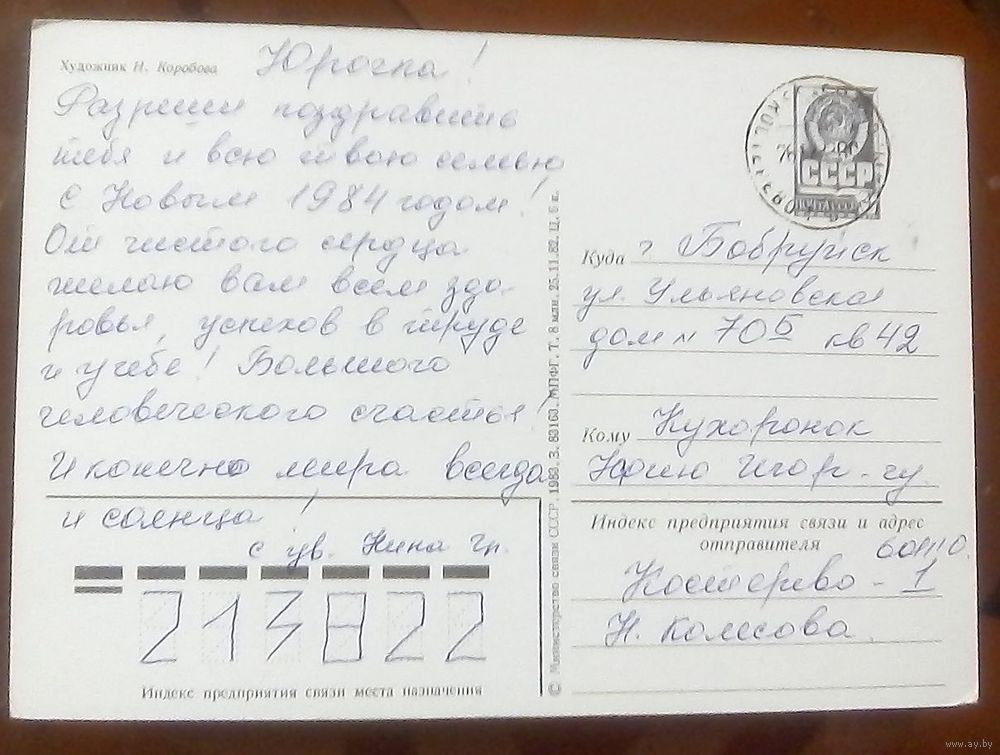 Художник Н. Коробова
Юрочка!
Разреши поздравить
тебя и всю твою семью
с Новым 1984 годом!
От чистого сердца
желаю вам всем здо-
ровья, успехов в труде
и учебе! Большого
человеческого счастья!
И конечно мира всегда
и солнца!
с ув. Нина Гр.
213822
Индекс предприятия связи места назначения
© Министерство связи СССР. 1983. З. 83163. МПФГ. Т. 8 млн. 25.11.82. Ц. 5 к.
СССР
Куда г Бобруйск
ул. Ульяновская
дом № 70Б кв 42
Кому Кухаронок
Юрию Игор-чу.
Индекс предприятия связи и адрес
отправителя
601110.
Костерево - 1
Н. Колесова
www.ay.by